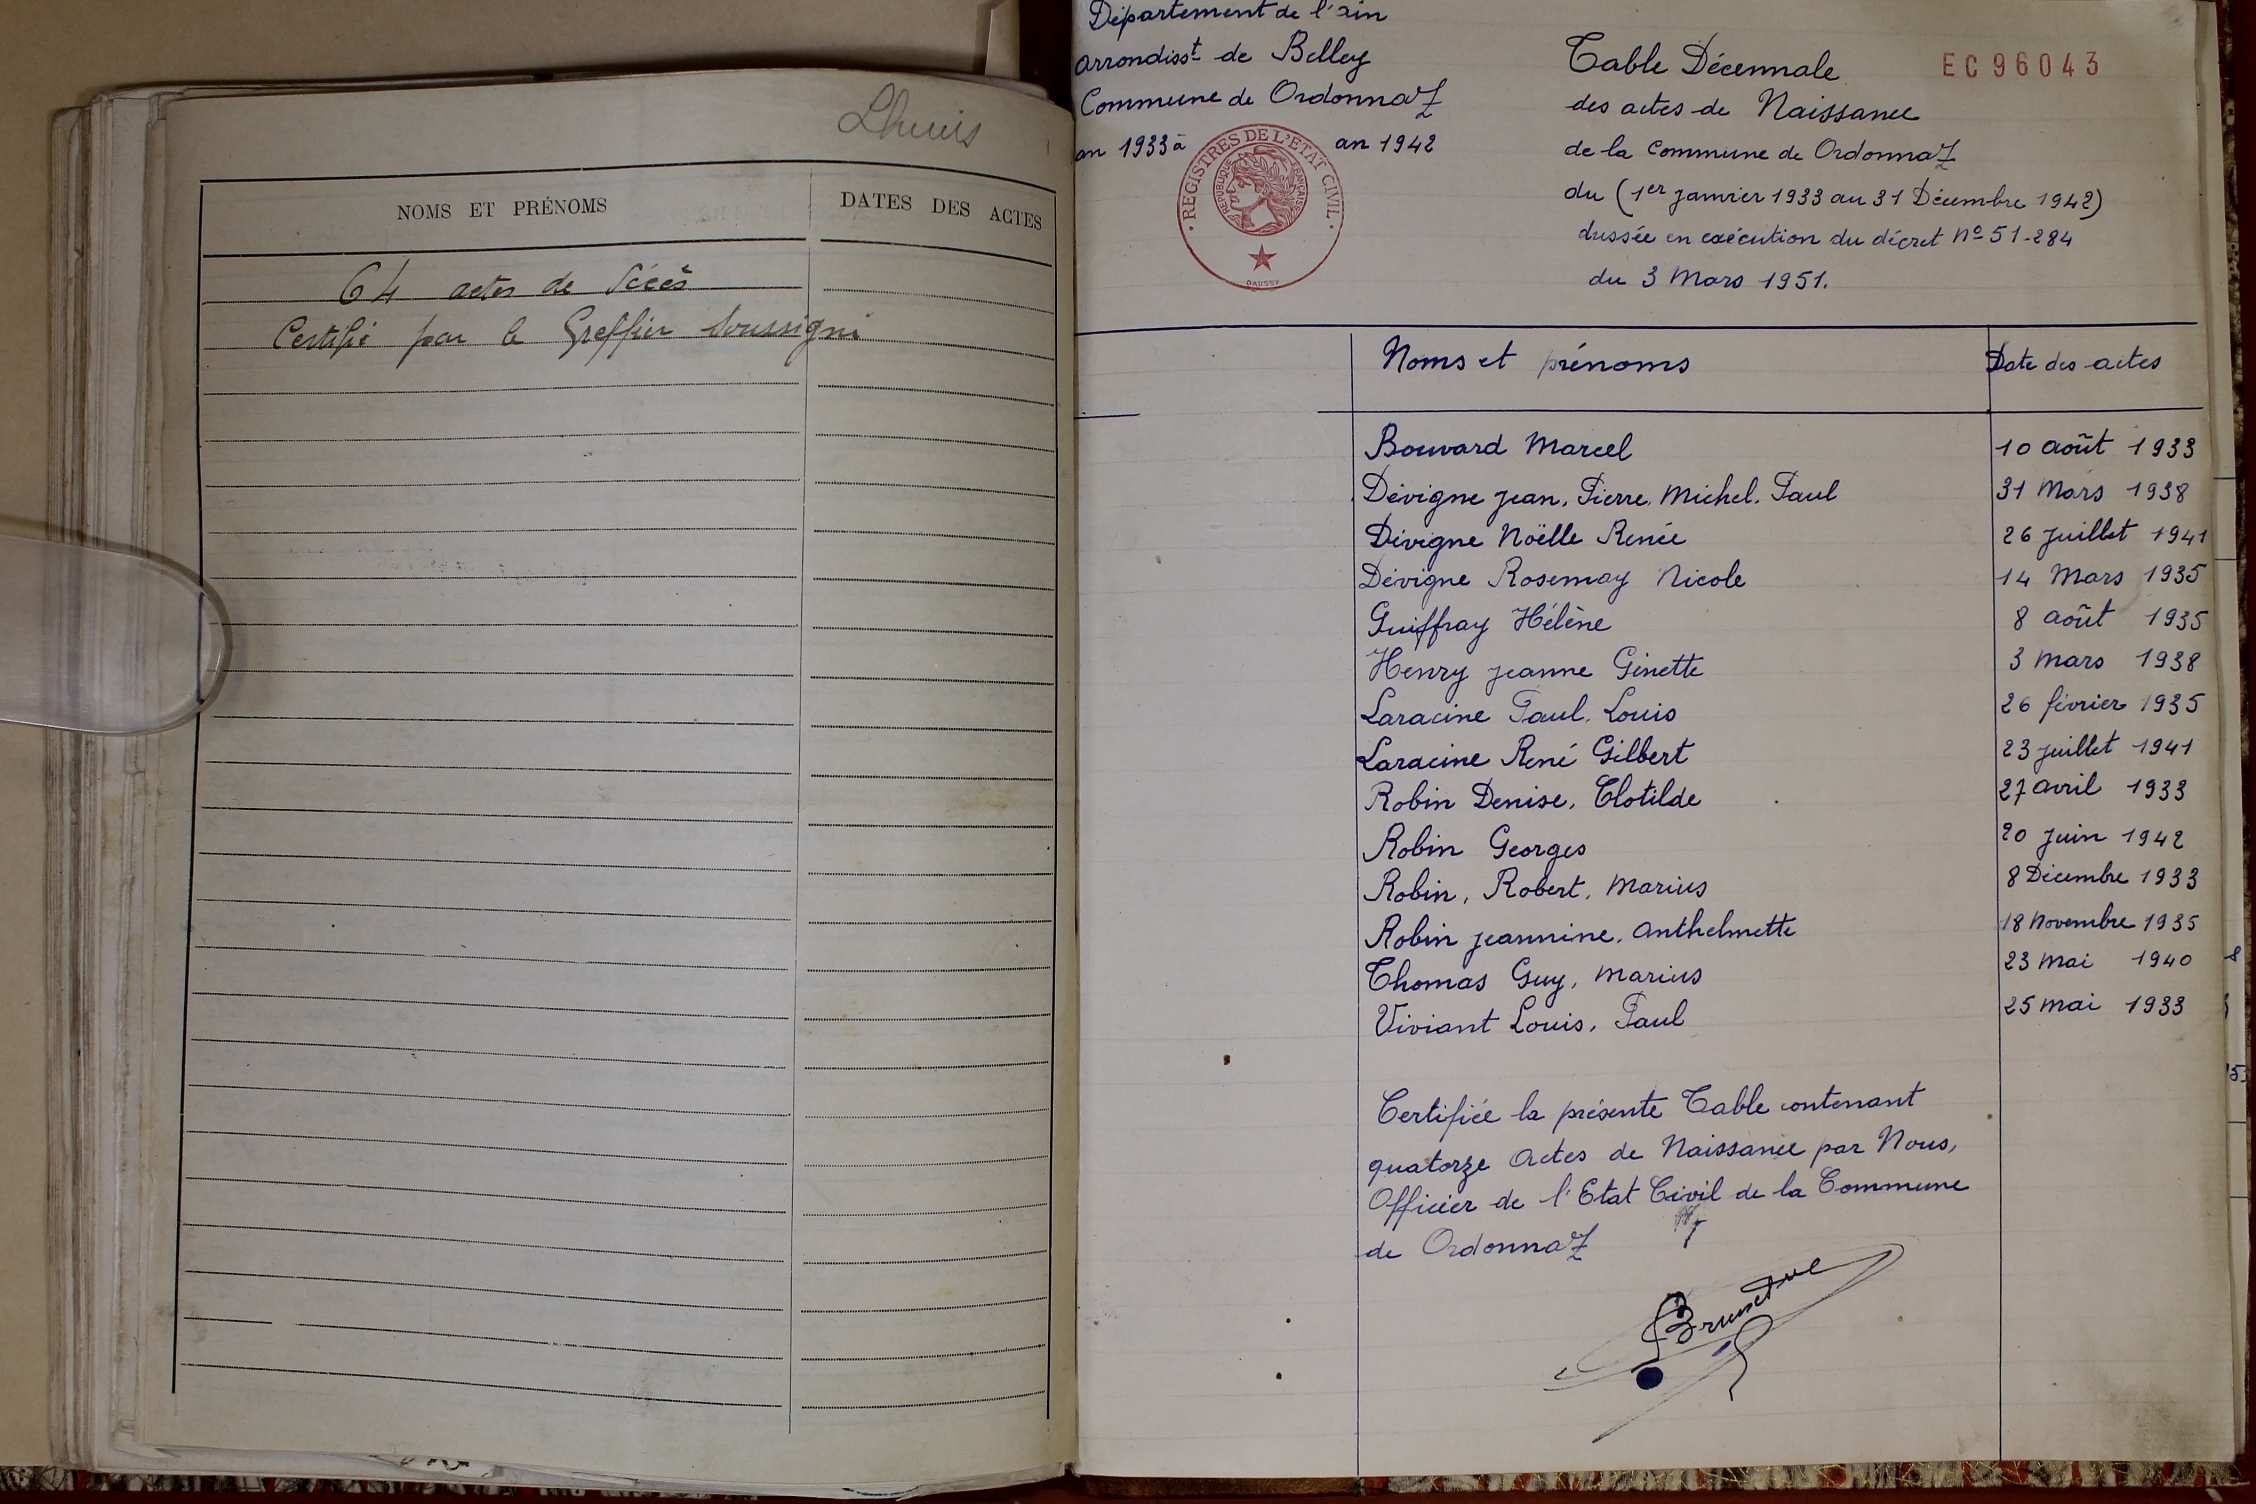 Lhuis
NOMS ET PRÉNOMS
DATES DES ACTES
64 actes de décès
Certifié par le Greffier soussigné
Département de l'ain
arrondisst de Belley
Commune de Ordonnaz
an 1933 à an 1942
REGISTRES DE L'ETAT CIVIL
REPUBLIQUE FRANÇAISE
DAUSSY
Table Décennale
EC96043
des actes de Naissance
de la Commune de Ordonnaz
du (1er janvier 1933 au 31 Décembre 1942)
dressée en exécution du décret No 51-284
du 3 Mars 1951.
Noms et prénoms Date des actes
Bouvard Marcel 10 août 1933
Dévigne jean, Pierre, Michel, Paul 31 Mars 1938
Dévigne Noëlle Renée 26 juillet 1941
Dévigne Rosemay Nicole 14 Mars 1935
Guiffray Hélène 8 août 1935
Henry jeanne Ginette 3 mars 1938
Laracine Paul, Louis 26 février 1935
Laracine René Gilbert 23 juillet 1941
Robin Denise, Clotilde 27 avril 1933
Robin Georges 20 juin 1942
Robin, Robert, Marius 8 Décembre 1933
Robin jeannine, anthelmette 18 novembre 1935
Thomas Guy, Marius 23 mai 1940
Viviant Louis, Paul 25 mai 1933
Certifiée la présente Table contenant
quatorze Actes de Naissance par Nous,
Officier de l'Etat Civil de la Commune
de Ordonnaz